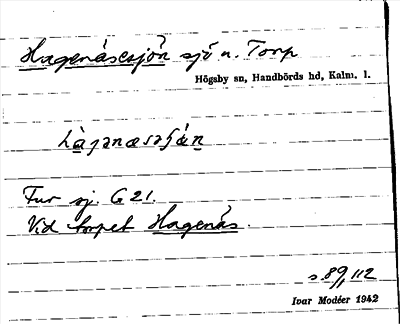 Hagenässjön sjö n. Torp
Högsby sn, Handbörds hd, Kalm. l.
Fur sj. G 21.
Vid torpet Hagenäs.
s. 89, 112
Ivar Modéer 1942